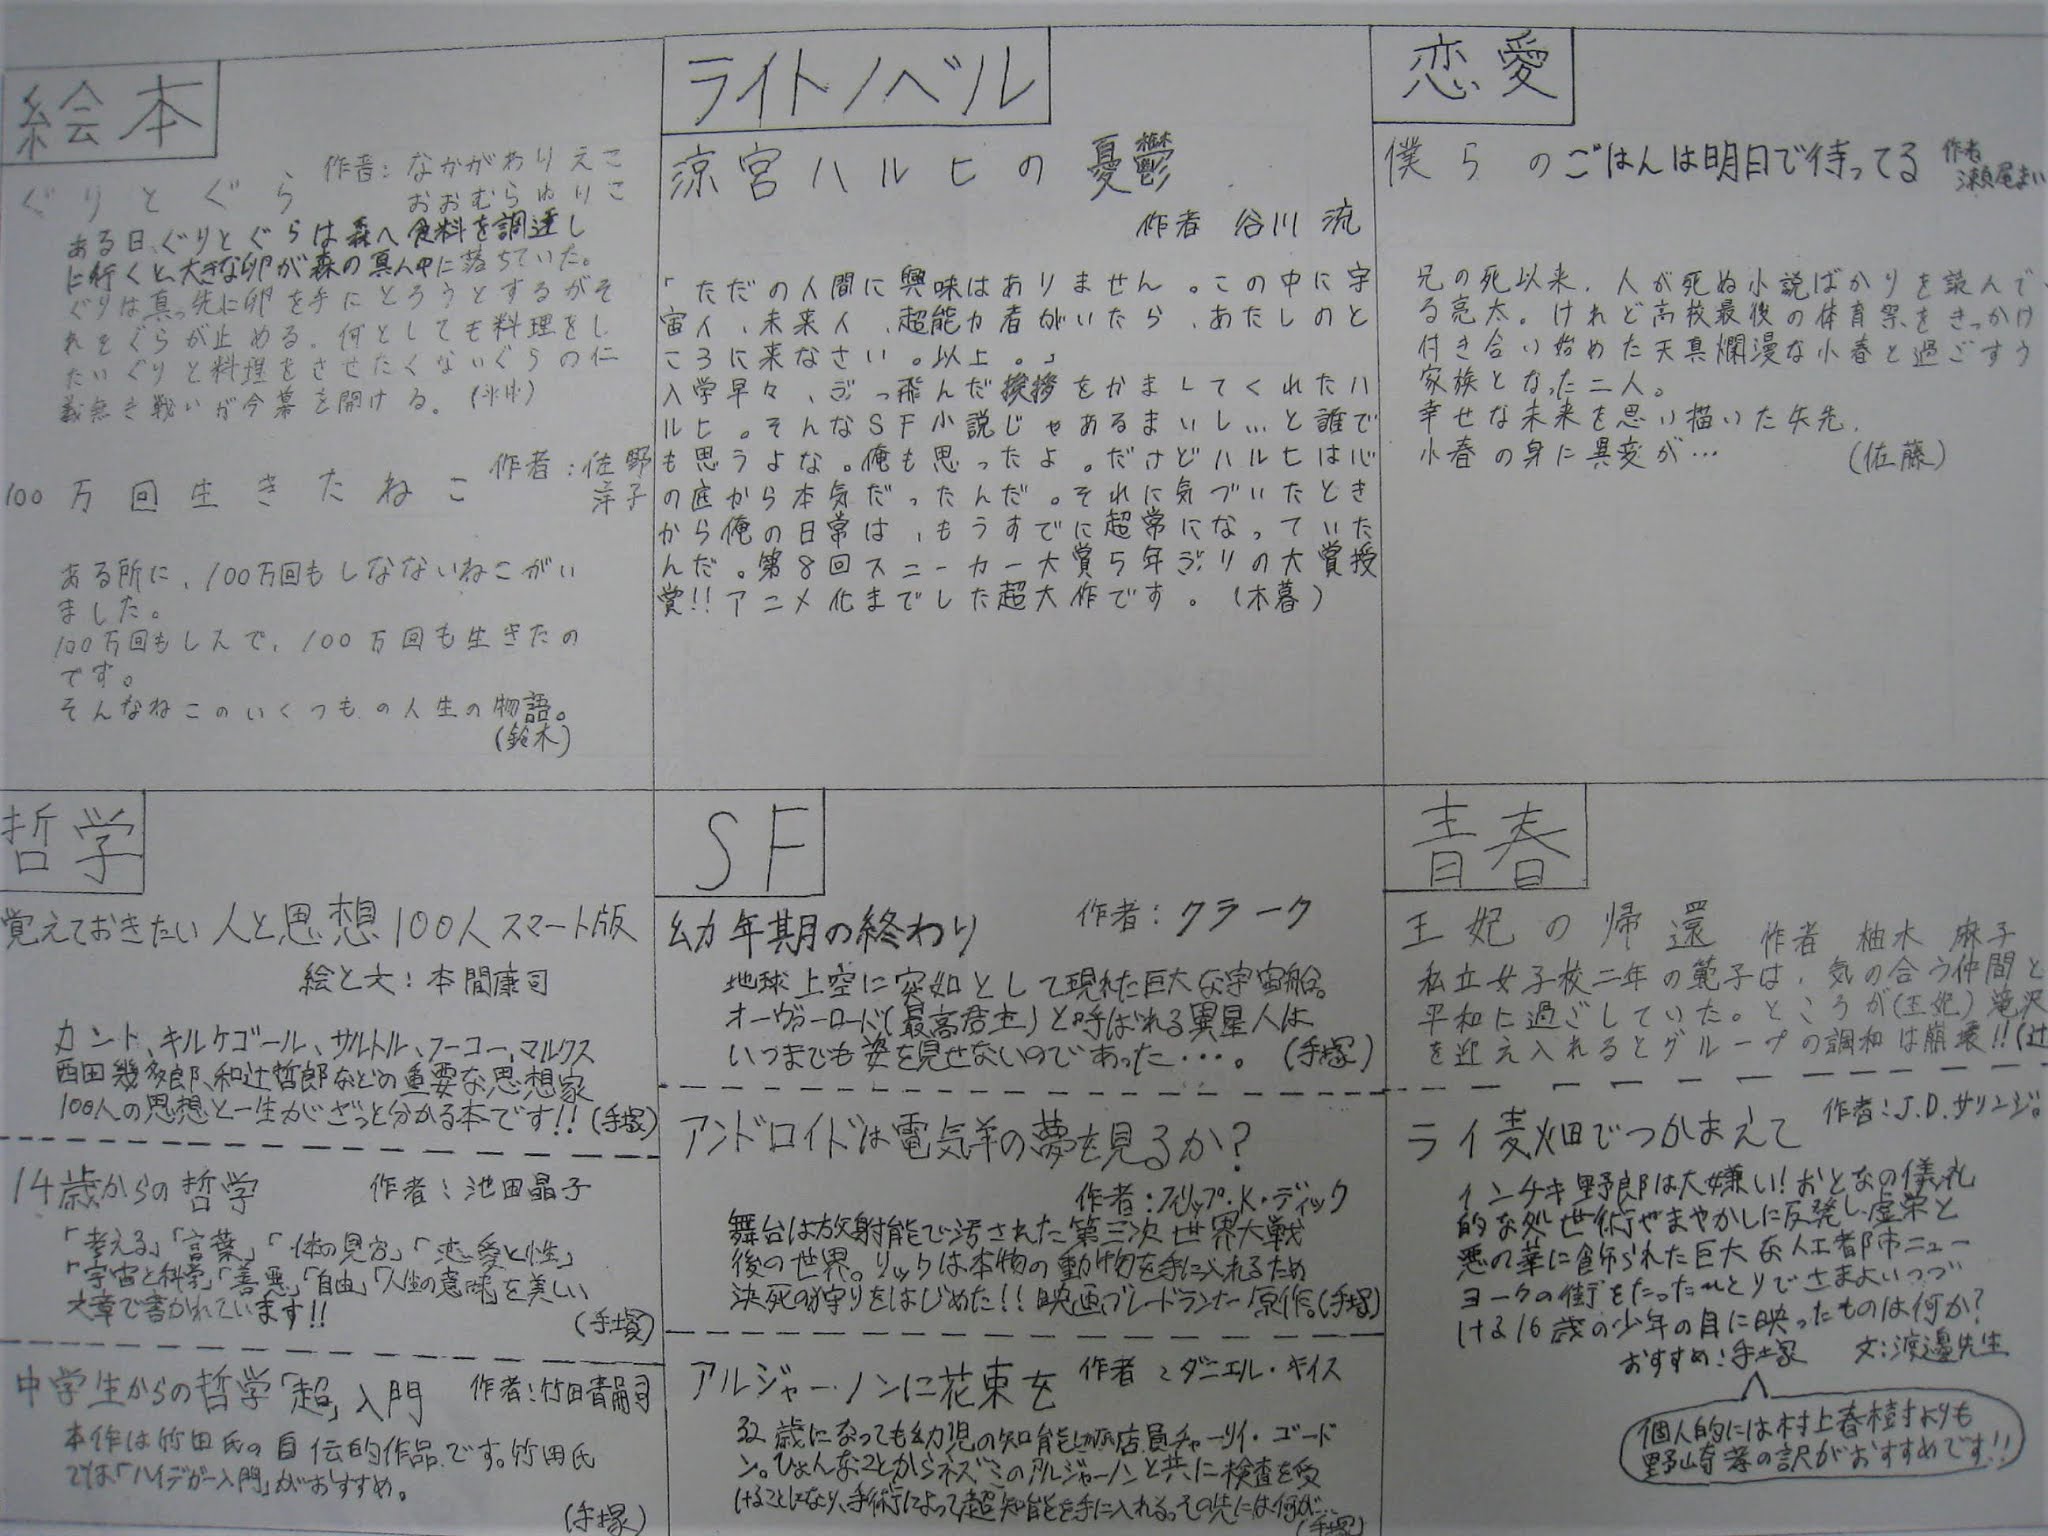 絵本
作者：なかがわりえこ
ぐりとぐら おおむらゆりこ
ある日、ぐりとぐらは森へ食料を調達し
に行くと、大きな卵が森の真ん中に落ちていた。
ぐりは真っ先に卵を手にとろうとするがそ
れをぐらが止める。何としても料理をし
たいぐりと料理をさせたくないぐらの仁
義無き戦いが今幕を開ける。
100万回生きたねこ 作者：佐野
洋子
ある所に、100万回もしなないねこがい
ました。
100万回もしんで、100万回も生きたの
です。
そんなねこのいくつもの人生の物語。
(鈴木)
ライトノベル
涼宮ハルヒの憂鬱
作者 谷川 流
「ただの人間に興味はありません。この中に宇
宙人、未来人、超能力者がいたら、あたしのと
ころに来なさい。以上。」
入学早々、ぶっ飛んだ挨拶をかましてくれたハ
ルヒ。そんなSF小説じゃあるまいし…と誰で
も思うよな。俺も思ったよ。だけどハルヒは心
の底から本気だったんだ。それに気づいたとき
から俺の日常は、もうすでに超常になっていた
んだ。第8回スニーカー大賞5年ぶりの大賞授
賞!!アニメ化までした超大作です。(木暮)
恋愛
僕らのごはんは明日で待ってる 作者
瀬尾まい
兄の死以来、人が死ぬ小説ばかりを読んで
る亮太。けれど高校最後の体育祭をきっかけ
付き合い始めた天真爛漫な小春と過ごすう
家族となった二人。
幸せな未来を思い描いた矢先、
小春の身に異変が… (佐藤)
哲学
覚えておきたい人と思想100人 スマート版
絵と文：本間康司
カント、キルケゴール、サルトル、フーコー、マルクス
西田幾多郎、和辻哲郎などの重要な思想家
100人の思想と一生がざっと分かる本です!!(手塚)
14歳からの哲学 作者：池田晶子
「考える」「言葉」「体の見方」「恋愛と性」
「宇宙と科学」「善悪」「自由」「人生の意味」を美しい
文章で書かれています!!
(手塚)
中学生からの哲学「超」入門 作者：竹田青嗣
本作は竹田氏の自伝的作品です。竹田氏
では「ハイデガー入門」がおすすめ。
(手塚)
SF
幼年期の終わり 作者：クラーク
地球上空に突如として現れた巨大な宇宙船。
オーヴァーロード(最高君主)と呼ばれる異星人は
いつまでも姿を見せないのであった・・・。(手塚)
アンドロイドは電気羊の夢を見るか？
作者：フィリップ・K・ディック
舞台は放射能で汚された第三次世界大戦
後の世界。リックは本物の動物を手に入れるため
決死の狩りをはじめた!!映画ブレードランナー原作。(手塚)
アルジャーノンに花束を 作者：ダニエル・キイス
32歳になっても幼児の知能しかない店員チャーリイ・ゴード
ン。ひょんなことからネズミのアルジャーノンと共に検査を受
けることになり、手術によって超知能を手に入れる。その先には何が…
(手塚)
青春
王妃の帰還 作者 柚木 麻子
私立女子校二年の範子は、気の合う仲間と
平和に過ごしていた。ところが(王妃)滝沢
を迎え入れるとグループの調和は崩壊!!(辻
ライ麦畑でつかまえて 作者：J.D.サリンジ。
インチキ野郎は大嫌い！おとなの儀礼
的な処世術やまやかしに反発し虚栄と
悪の華に飾られた巨大な人工都市ニュー
ヨークの街をたったひとりでさまよいつづ
ける16歳の少年の目に映ったものは何か？
おすすめ：手塚 文：渡邉先生
個人的には村上春樹よりも
野崎孝の訳がおすすめです!!